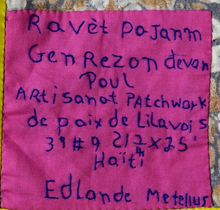 Ravèt pajanm
Gen Rezon devan
Poul
ARtisanat PAtchwork
de paix de Lilavois
39 # 9 21/2 x 25"
Haïti
Edlande Metellus